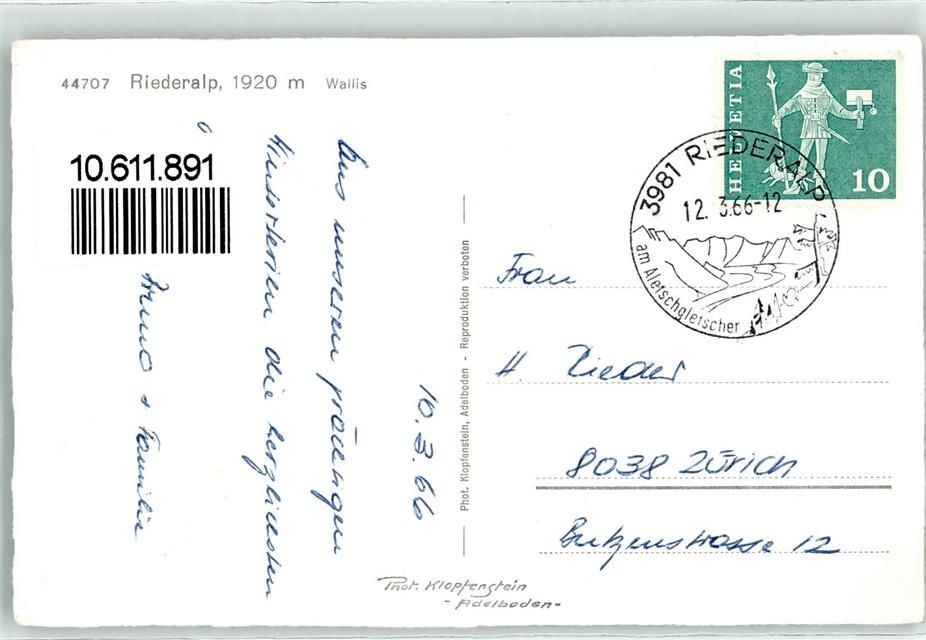 44707 Riederalp, 1920 m Wallis
10.611.891
10.3.66
Aus unseren prächtigen
Winterferien die herzlichsten
Arno & Familie
Phot. Klopfenstein, Adelboden - Reproduktion verboten
HELVETIA
10
3981 RIEDERALP
12. 3.66-12
am Aletschgletscher
Frau
H. Rieder
8038 Zürich
Butzenstrasse 12
Phot. Klopfenstein
- Adelboden -